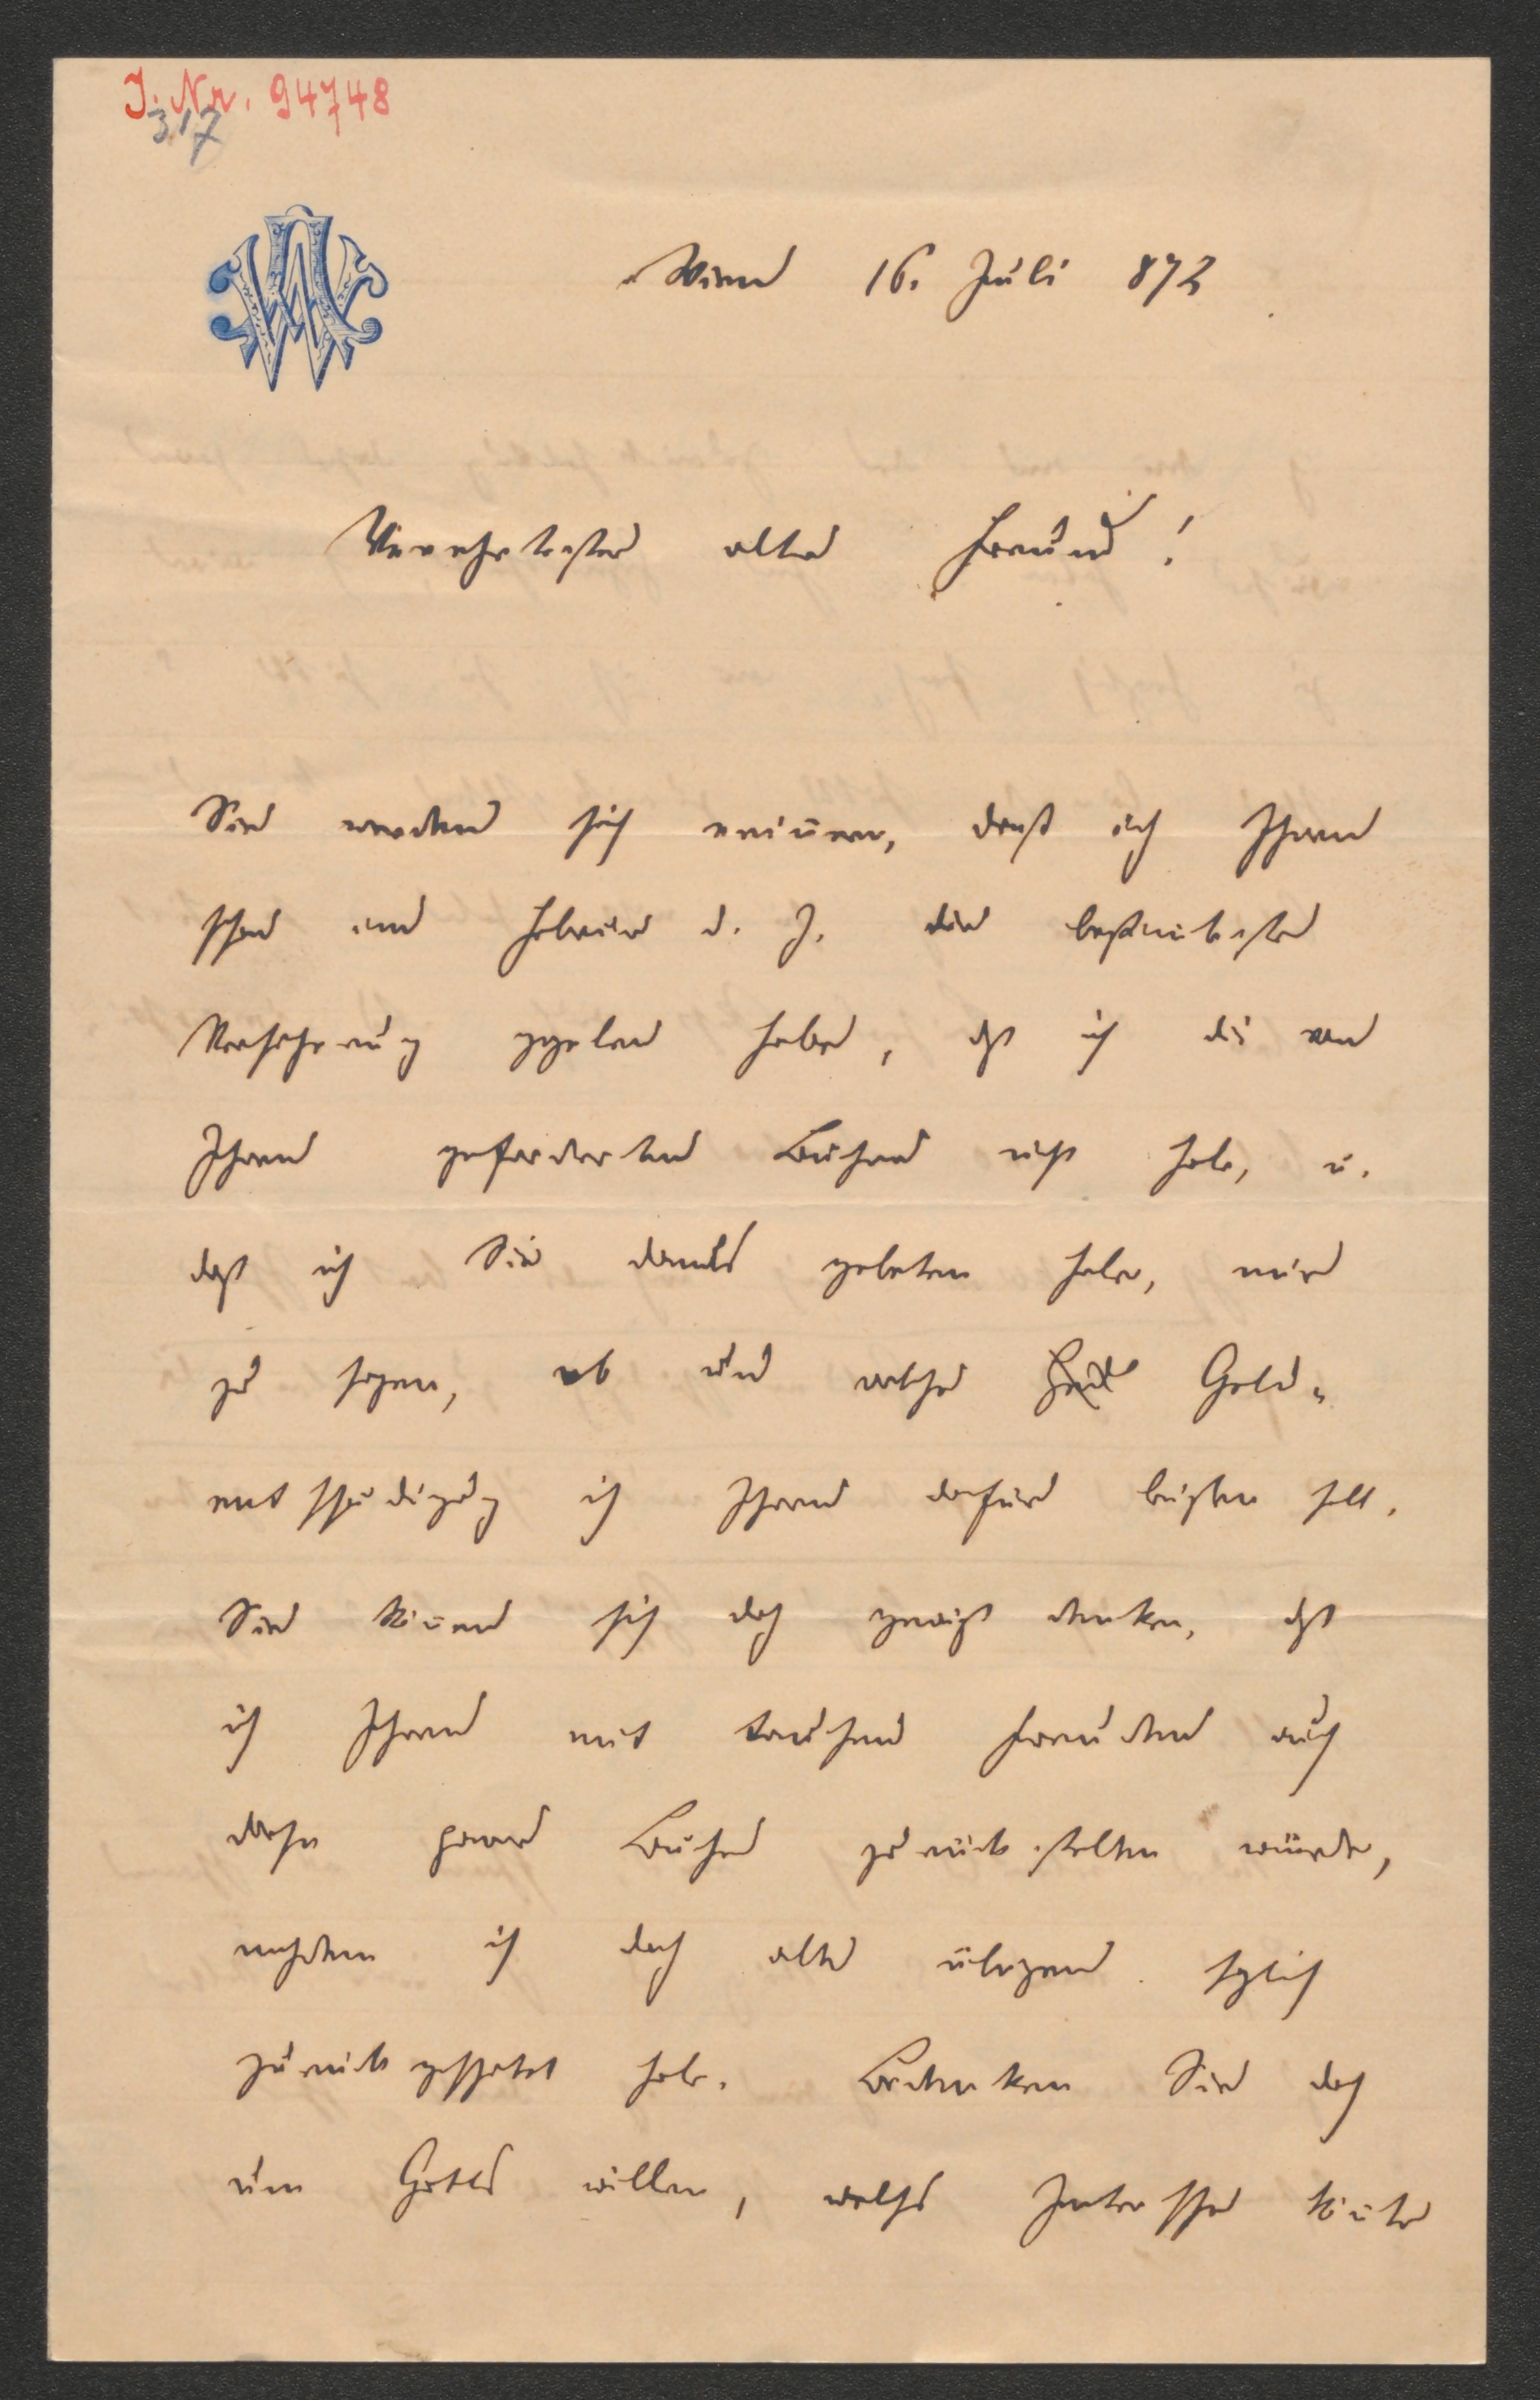 J. Nr. 94748
317
Wien 16. Juli 872
Verehrtester alter Freund!
Sie werden sich erinnern, daß ich Ihnen
schon im Februar d. J. die bestimteste
Versicherung gegeben habe, daß ich die von
Ihnen geforderten Bücher nicht habe, u.
daß ich Sie damals gebeten habe, mir
zu sagen, ob und welche Geld-
entschädigung ich Ihnen dafür leisten soll.
Sie können sich doch gewiß denken, daß
ich Ihnen mit tausend Freuden auch
diese paar Bücher zurückstellen würde,
nachdem ich doch alle übrigen sogleich
zurückgestellt habe. Bedenken Sie doch
um Gottes willen, welches Interesse könte